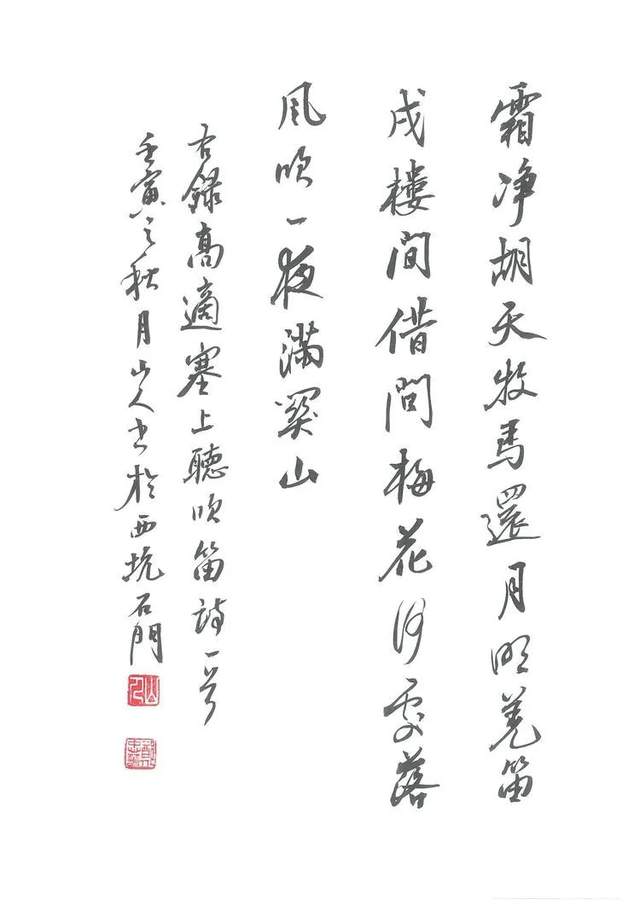 霜净胡天牧馬還月明羌笛
戍樓間借問梅花何處落
風吹一夜滿關山
右錄高適塞上聽吹笛詩一首
壬寅之秋月山人書於西坑石門
山人